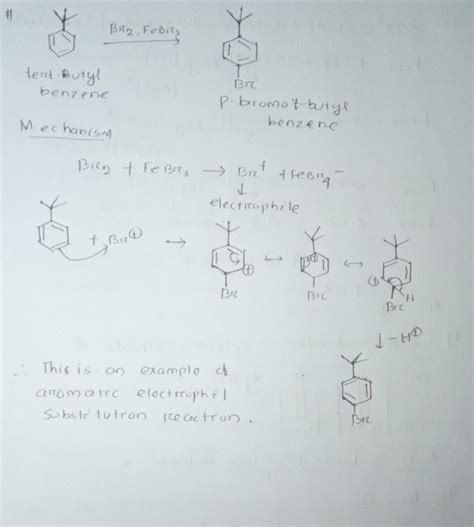 #
Br2, FeBr3
tert-Butyl
benzene
Br
P-bromo t-butyl
benzene
Mechanism
Br2 + FeBr3 → Br+ + FeBr4-
↓
electrophile
+ Br⊕ → ⊕ ↔ ⊕ ↔ ⊕
Br Br Br H
↓ -H⊕
∴ This is an example of
aromatic electrophil
substitution reaction.
Br